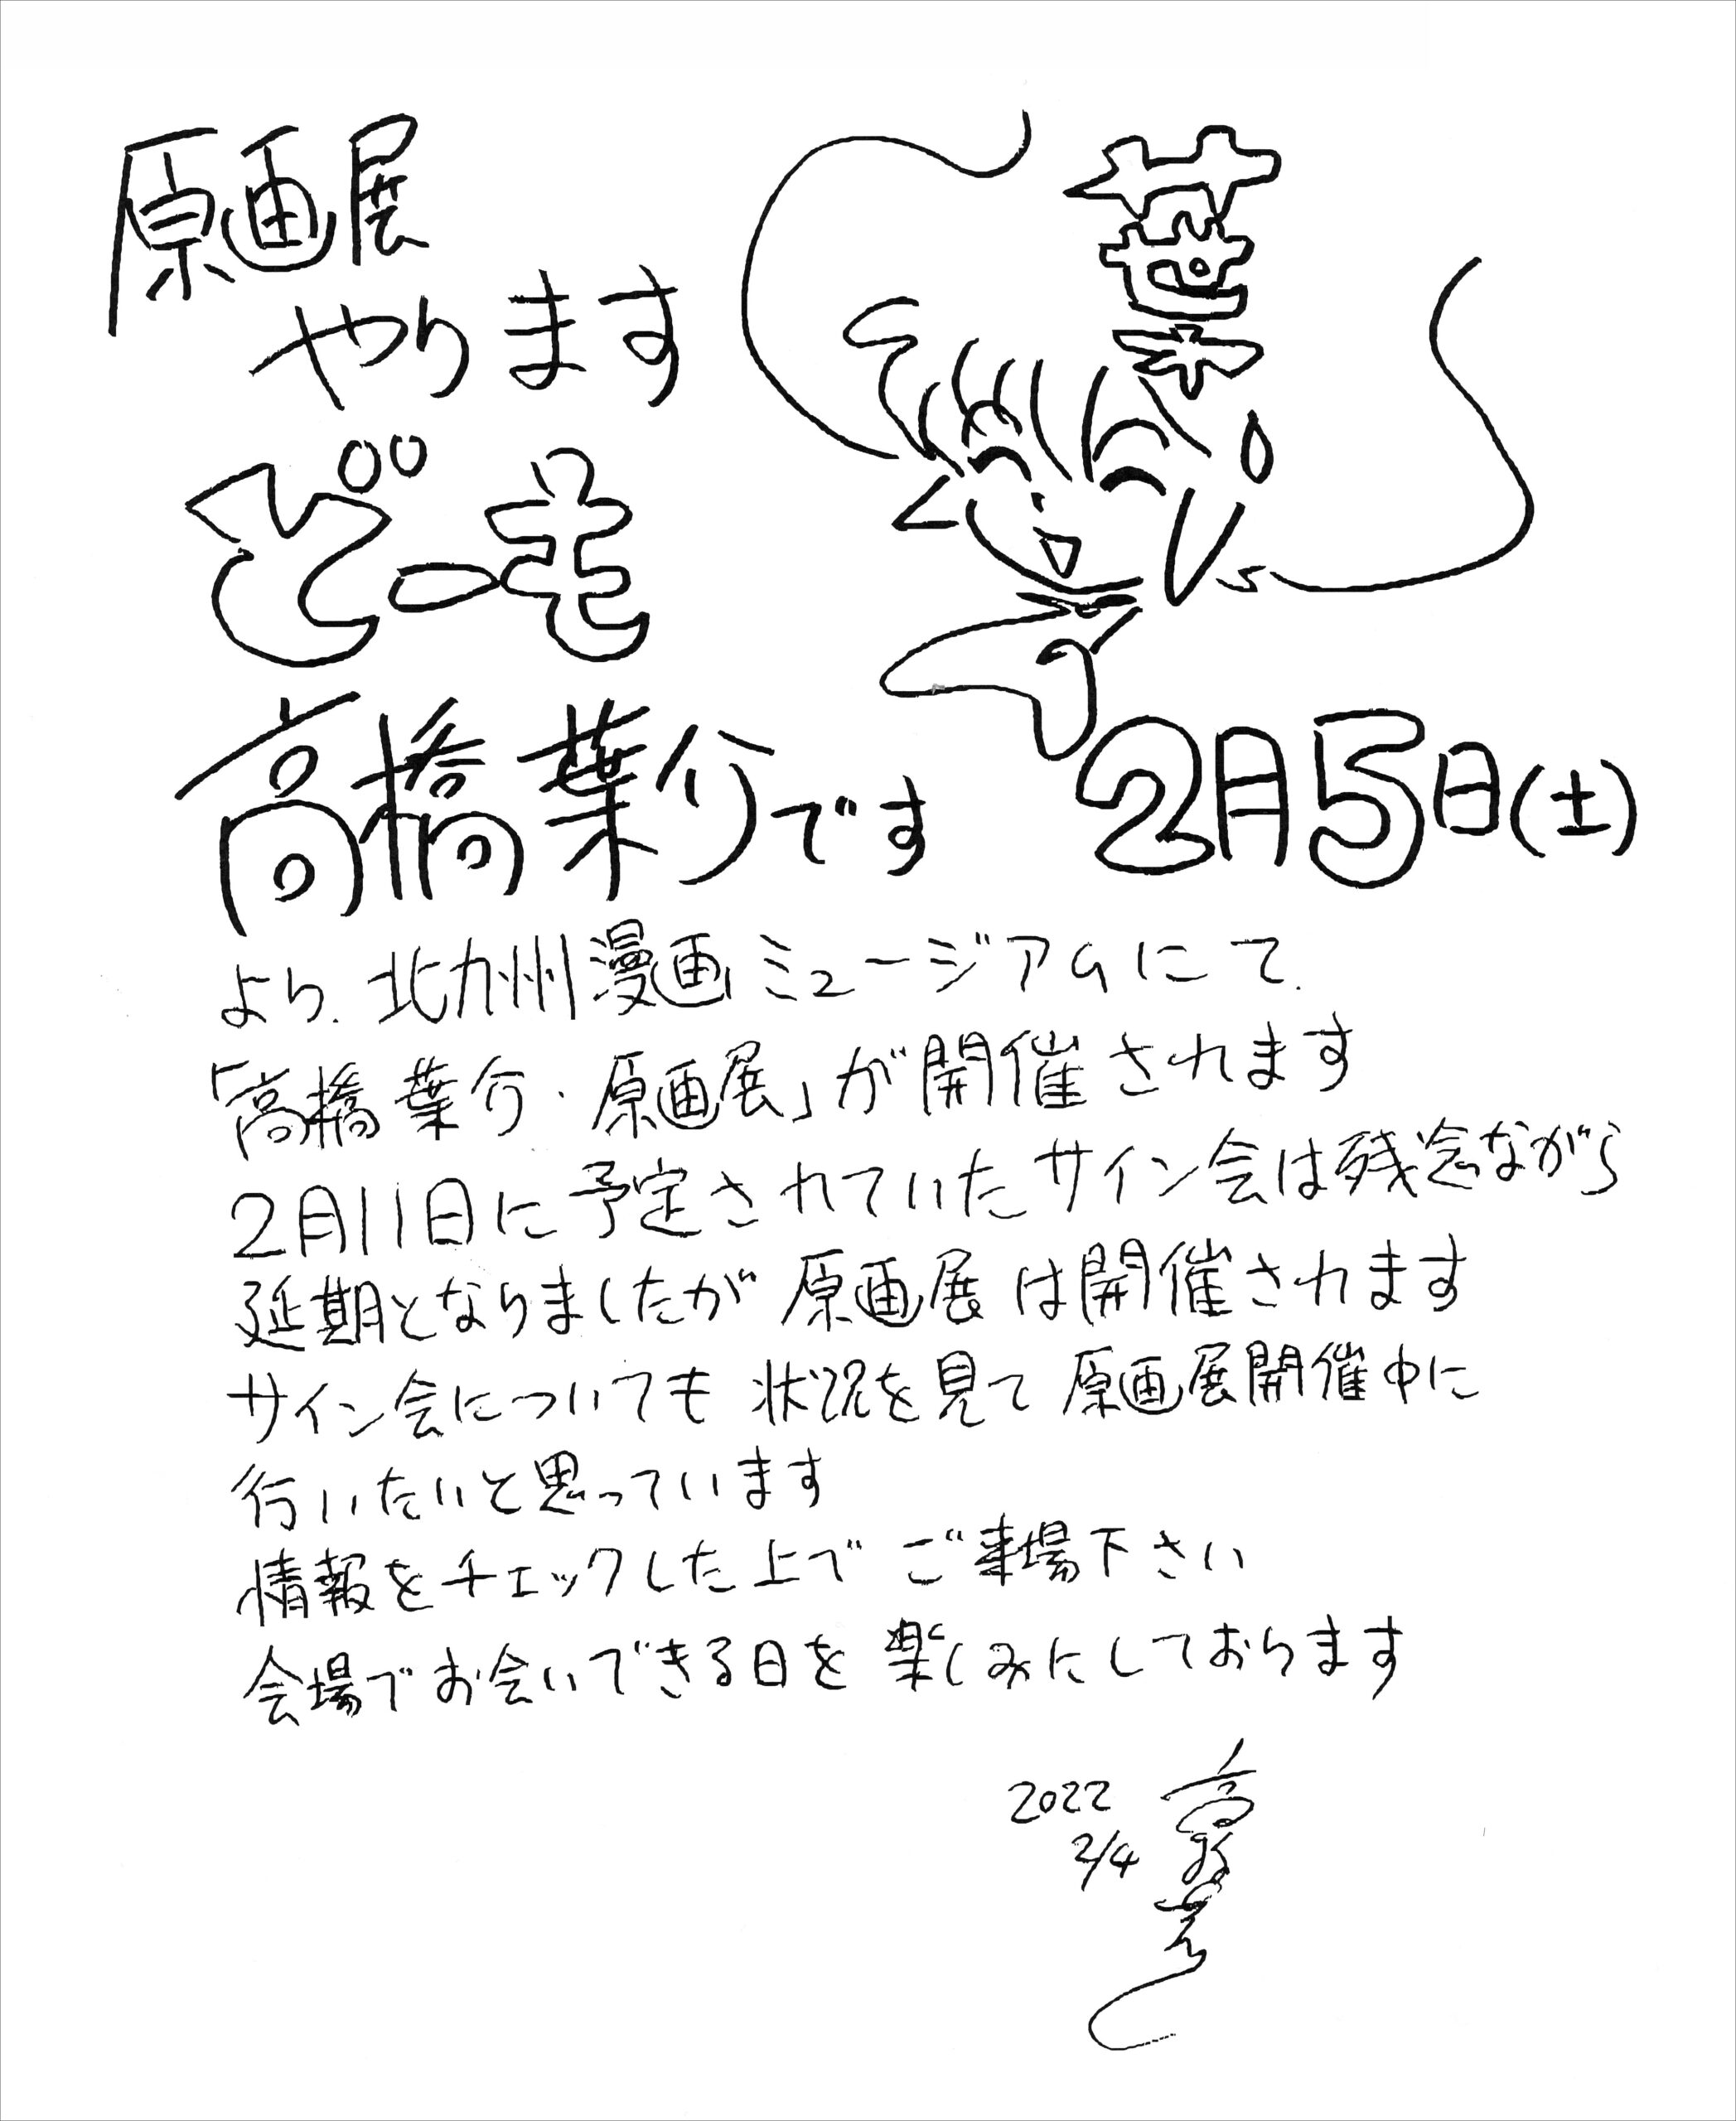 原画展
やります
葉
どーも
高橋葉介です 2月5日(土)
より、北九州漫画ミュージアムにて、
「高橋葉介・原画展」が開催されます
2月11日に予定されていたサイン会は残念ながら
延期となりましたが 原画展は開催されます
サイン会についても 状況を見て 原画展開催中に
行いたいと思っています
情報をチェックした上で ご来場下さい
会場でお会いできる日を 楽しみにしております
2022
2/4